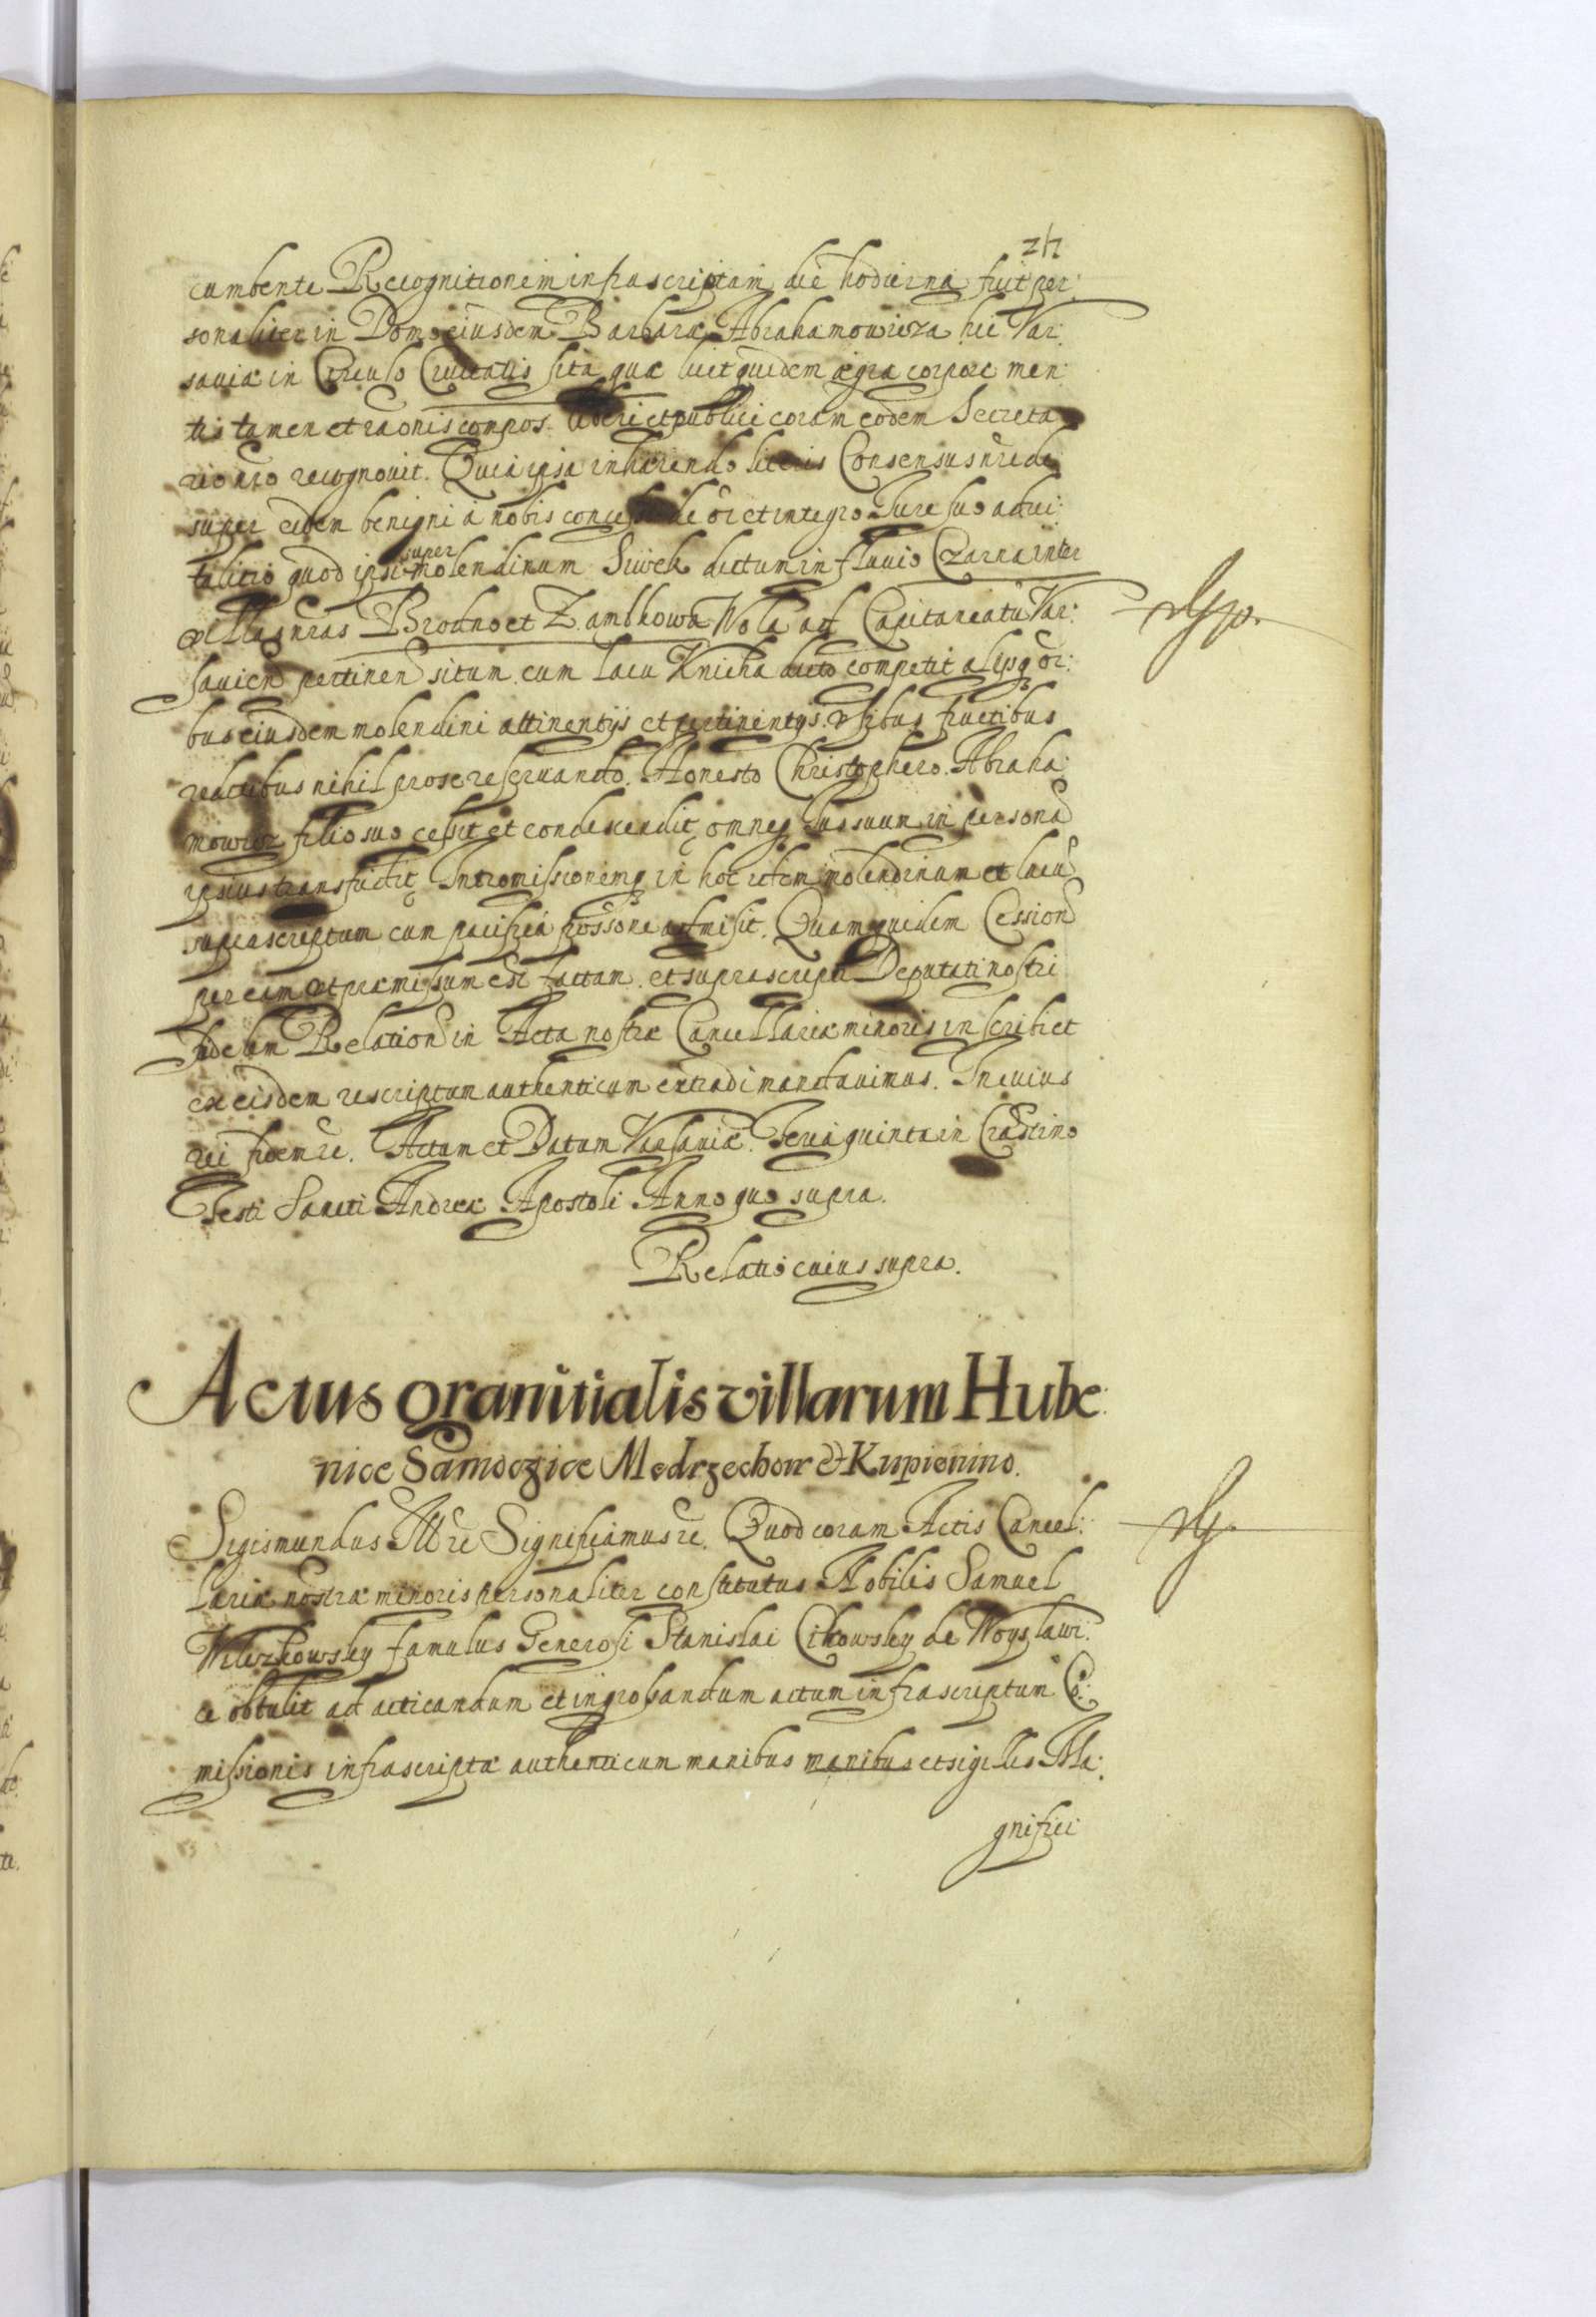 24
cumbente Recognitionem infrascriptam die hodierna fuit per:
sonaliter in Domo eiusdem Barbaræ Abrahamowicza hic Var:
saviæ in Circulo Civitatis sita quæ licet quidem ægra corpore men:
tis tamen et raonis compos. libere et publice coram eodem Secreta
rio nro recognovit. Quia ipsa inhærendo literis Consensus nri de
super eidem benigni à nobis concessi de oi et integro Jure suo advi:
talitio quod ipsi super molendinum Siwek dictum in fluvio Czarna inter
villas nras Brodno et Zambkowa Wola ad Capitaneatū Var:
savien pertinen situm cum lacu Knieha dicto competit alijsq̃ oi:
bus eiusdem molendini attinentijs et pertinentijs. Vsibus fructibus
reditibus nihil pro se reservando. Honesto Christophero Abraha:
mowicz filio suo cessit et condescendit, omneq̃ Jus suum in personã
ipsius transfudit, Intromissionemq̃ in hoc idem molendinum et lacũ
suprascriptum cum pacifica possone admisit. Quam quidem Cession
per eam ut præmissum est factam et suprascripti Deputati nostri
fidelem Relation in Acta nostræ Cancellariæ minoris inscribi et
ex eisdem rescriptum authenticum extradi mandavimus. In cuius
rei fidem &c. Actum et Datum Varsaviæ. Feria quinta in Crastino
Festi Sancti Andreæ Apostoli Anno quo supra.
Relatio cuius supra.
Actus granitialis villarum Hube:
nice Samoczice Medrzechow & Kupienino.
Sigismundus III &c Significamus &c. Quod coram Actis Cancel:
lariæ nostræ minoris personaliter constitutus Nobilis Samuel
famulus Generosi Stanislai Cikowsky de Woyslawi:
ce obtulit ad acticandum et ingrossandum actum infrascriptum Cō:
missionis infrascriptæ authenticum manibus manibus et sigillis Ma:
gnifici